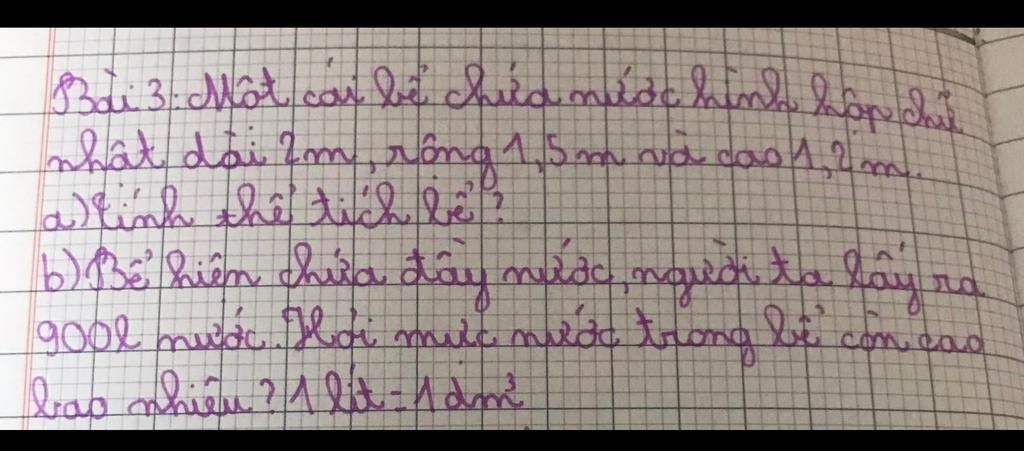 Bài 3: Một cái bể chứa nước hình hộp chữ
nhật dài 2m, rộng 1,5m và cao 1,2m.
a) tính thể tích bể?
b) Bể hiện chứa đầy nước, người ta lấy ra
900l nước. Hỏi mực nước trong bể còn cao
bao nhiêu? 1 lít = 1dm³